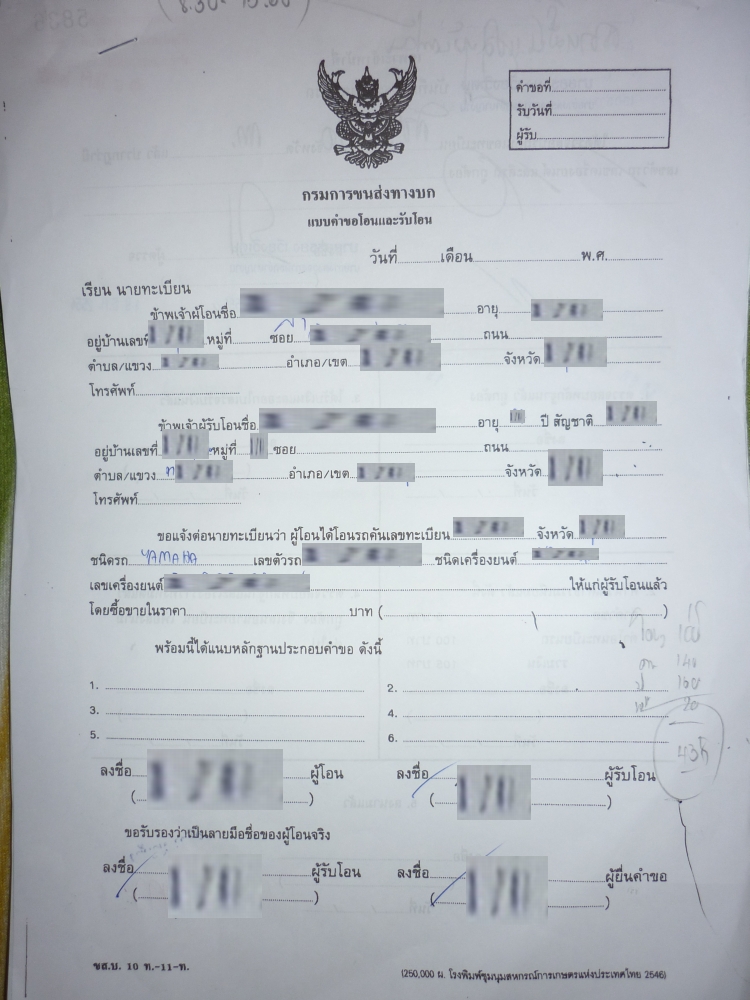 คำขอที่
รับวันที่
ผู้รับ
กรมการขนส่งทางบก
แบบคำขอโอนและรับโอน
วันที่ เดือน พ.ศ.
เรียน นายทะเบียน
ข้าพเจ้าผู้โอนชื่อ อายุ
อยู่บ้านเลขที่ หมู่ที่ ซอย ถนน
ตำบล/แขวง อำเภอ/เขต จังหวัด
โทรศัพท์
ข้าพเจ้าผู้รับโอนชื่อ อายุ ปี สัญชาติ
อยู่บ้านเลขที่ หมู่ที่ ซอย ถนน
ตำบล/แขวง อำเภอ/เขต จังหวัด
โทรศัพท์
ขอแจ้งต่อนายทะเบียนว่า ผู้โอนได้โอนรถคันเลขทะเบียน จังหวัด
ชนิดรถ YAMAHA เลขตัวรถ ชนิดเครื่องยนต์
เลขเครื่องยนต์ ให้แก่ผู้รับโอนแล้ว
โดยซื้อขายในราคา บาท ( )
พร้อมนี้ได้แนบหลักฐานประกอบคำขอ ดังนี้
1. 2.
3. 4.
5. 6.
ลงชื่อ ผู้โอน ลงชื่อ ผู้รับโอน
( ) ( )
ขอรับรองว่าเป็นลายมือชื่อของผู้โอนจริง
ลงชื่อ ผู้รับโอน ลงชื่อ ผู้ยื่นคำขอ
( ) ( )
ขส.บ. 10 ท.-11-ท.
(250,000 ผ. โรงพิมพ์ชุมนุมสหกรณ์การเกษตรแห่งประเทศไทย 2546)